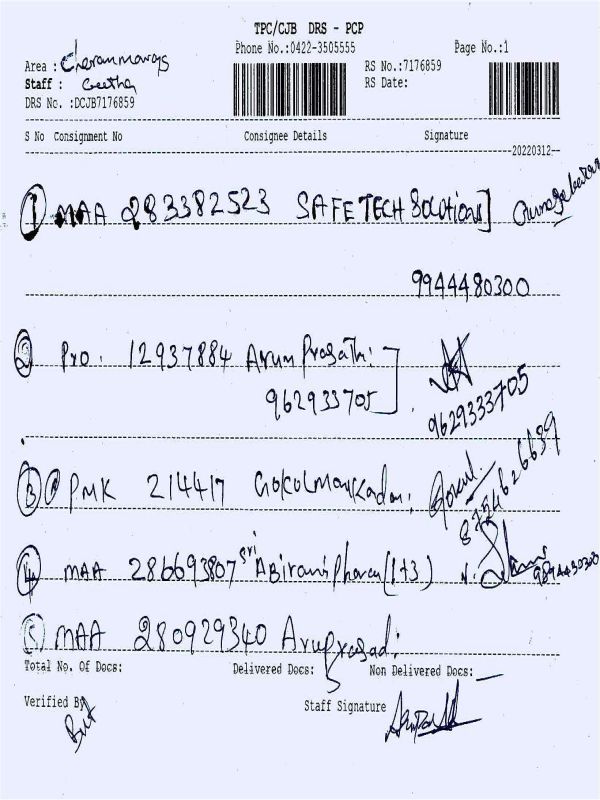 TPC/CJB DRS - PCP
Phone No.:0422-3505555 Page No.:1
Area : Cheranmanagar RS No.:7176859
Staff : Geetha RS Date:
DRS No. :DCJB7176859
S No Consignment No Consignee Details Signature
20220312
1 MAA 283382523 SAFE TECH Solutions]
9944480300
2 Pro. 12937884 Arun Prasath:
962933705 9629333705
3 PMK 214417 Gokul Gokul. 8754626639
4 MAA 286693807 Sri Abirami Pharma (1+3) 9894430300
5 MAA 280929340 Aruprasad:
Total No. Of Docs: Delivered Docs: 5 Non Delivered Docs: —
Verified By Staff Signature